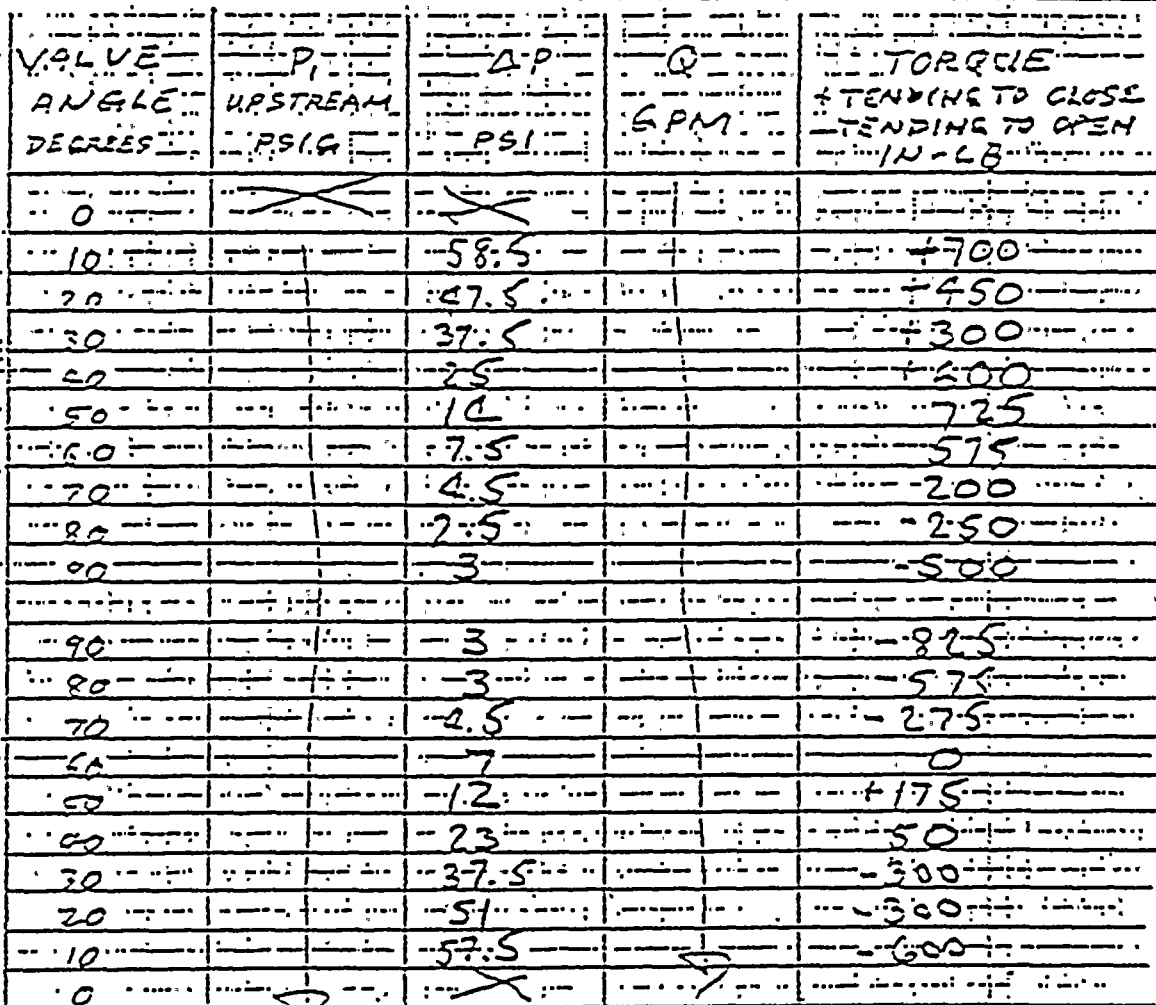 VALVE ANGLE DEGREES | P1 UPSTREAM PSIG | ΔP PSI | Q GPM | TORQUE + TENDING TO CLOSE - TENDING TO OPEN IN-LB
0
10 58.5 +700
20 47.5 +450
30 37.5 +300
40 25 +400
50 14 725
60 7.5 575
70 4.5 200
80 2.5 -250
90 3 -500
90 3 -825
80 3 -575
70 4.5 -275
60 7 0
50 12 +175
40 23 50
30 37.5 -300
20 51 -300
10 57.5 -600
0